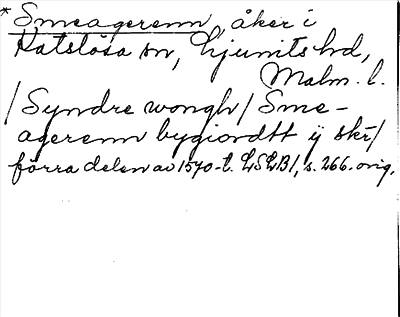 * Smeagerenn, åker i
Katslösa sn, Ljunits hd,
Malm. l.
/Syndre wongh/ Sme-
agerenn bygiordtt ij skr/
förra delen av 1570-t. LSLB1, s. 266. orig.